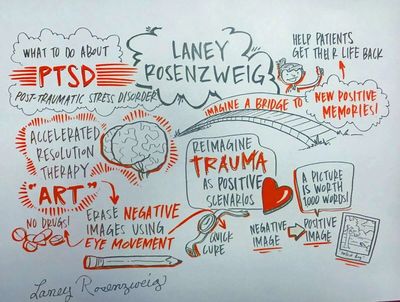 WHAT TO DO ABOUT
PTSD
POST-TRAUMATIC STRESS DISORDER
LANEY
ROSENZWEIG
HELP PATIENTS
GET THEIR LIFE BACK
IMAGINE A BRIDGE TO
NEW POSITIVE
MEMORIES!
ACCELERATED
RESOLUTION
THERAPY
"ART"
NO DRUGS!
ERASE NEGATIVE
IMAGES USING
EYE MOVEMENT
REIMAGINE
TRAUMA
AS POSITIVE
SCENARIOS
QUICK
CURE
A PICTURE
IS WORTH
1000 WORDS!
NEGATIVE
IMAGE
POSITIVE
IMAGE
Laney Rosenzweig